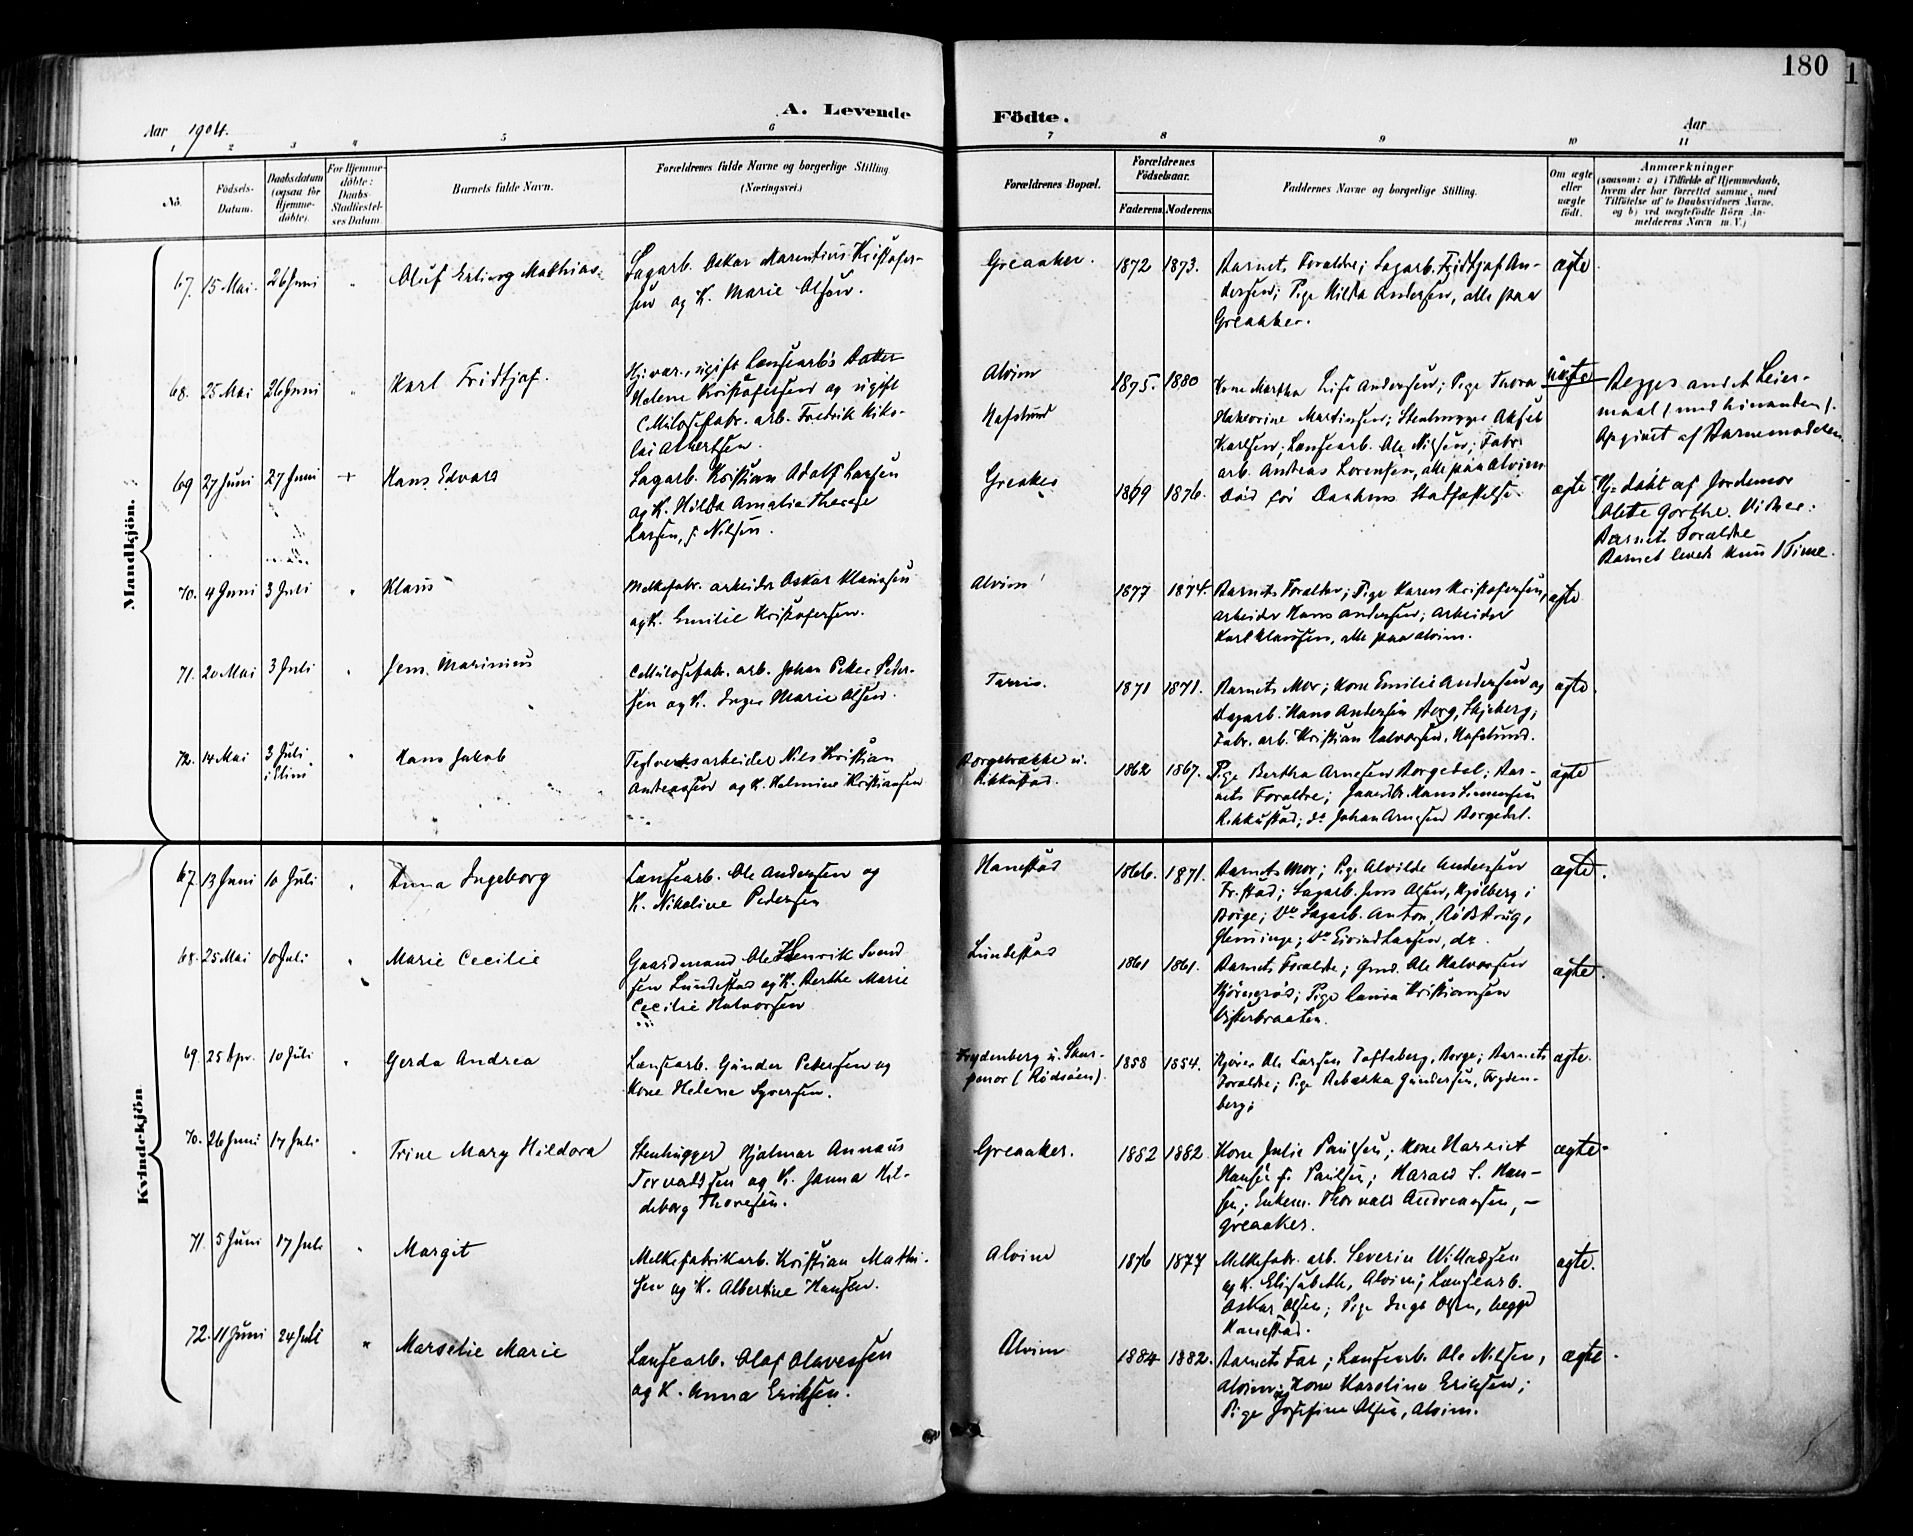 180
A. Levende Födte.
Aar 1904.
Aar
1 2 3 4 5 6 7 8 9 10 11
No.
Födsels-Datum.
Daabsdatum (ogsaa för Hjemme-döbte).
For Hjemme-döbte: Daabs-Stadfæstel-ses Datum.
Barnets fulde Navn.
Forældrenes fulde Navne og borgerlige Stilling (Næringsvei.)
Forældrenes Bopæl.
Forældrenes Födselsaar.
Faderens. Moderens.
Faddernes Navne og borgerlige Stilling.
Om ægte eller uægte födt.
Anmærkninger
(saasom: a) i Tilfælde af Hjemmedaab, hvem der har forrettet samme, med Tilföielse af to Daabsvidners Navne, og b) ved uægtefödte Börn An-melderens Navn m. V.)
Mandkjön.
67. 15 Mai. 26 Juni " Oluf Erling Mathias.
Sagarb. Oskar Marentius Kristofer-
sen og K. Marie Olsen.
Greaaker. 1872 1873.
Barnets Forældre; Sagarb. Fridtjof An-
dersen; Pige Hilda Andersen, alle paa
Greaaker.
ægte
68. 25 Mai 26 Juni " Karl Fridtjof.
ugift Lænsearb's Datter
Helene Kristofersen og ugift
Cellulosefabr. arb. Fredrik Niko-
lai Albertsen.
Alvim
Hafslund
1875. 1880
Kone Martha Lise Andersen; Pige Thora
Martinsen; Stenhugger Aksel
Karlsen; Lænsearb. Ole Nilsen; Fabr.
arb. Andreas Lorensen, alle paa Alvim
uægte
Begges andet Leier-
maal (med hinanden).
Opgivet af Barnemoderen
69 27 Juni 27 Juni + Hans Edvard
Sagarb. Kristian Adolf Larsen
og K. Hilda Amalie Therese
Larsen, f. Nilsen.
Greaker 1869 1876.
Död för Daabens Stadfæstelse.
ægte
Hj. döbt af Jordemor
Grethe. Vidner:
Barnets Forældre
Barnet levede kun 1 Time.
70. 4 Juni 3 Juli " Klaus
Melkefabr. arbeider Oskar Klaussen
og K. Emilie Kristofersen.
Alvim 1877 1874.
Barnets Forældre; Pige Karen Kristofersen,
arbeider Hans Andersen; Arbeider
Karl Klaussen, alle paa Alvim.
ægte
71. 20 Mai 3 Juli " Jens Marinius
Cellulosefabr. arb. Johan Peder Peder-
sen og K. Inger Marie Olsen.
Tarris. 1871 1871.
Barnets Mor; Kone Emilie Andersen og
Dagarb. Hans Andersen Berg, Skjeberg;
Fabr. arb. Kristian Halvorsen, Hafslund.
ægte
72. 14 Mai 3 Juli " Hans Jakob
Teglverksarbeider Nils Kristian
Andreassen og K. Helmine Kristiansen
Borgebække u.
Rikkustad. 1862 1867.
Pige Bertha Arnesen Borgedal; Bar-
nets Forældre; Hans Simensen
Rikkustad; do Johan Arnesen Borgedal.
ægte
Kvindekjön
67. 13 Juni 10 Juli " Anna Ingeborg
Lænsearb. Ole Andersen og
K. Nikoline Pedersen
Hanestad 1866. 1871.
Barnets Mor; Pige Alvilde Andersen
Fr.stad; Sagarb. Jens Olsen, Kjölberg i
Borge; do Sagarb. Anton,
Glemminge; do Eivind Larsen, do.
ægte.
68. 25 Mai 10 Juli " Marie Cecilie
Gaardmand Ole Henrik Svend
sen Lundestad og K. Berthe Marie
Cecilie Halvorsen
Lundestad 1861 1861.
Barnets Forældre; Gmd. Ole Halvorsen
Pige Laura Kristiansen
Visterbraaten.
ægte.
69. 25 Apr. 10 Juli " Gerda Andrea
Lænsearb. Gunder Petersen og
Kone Helene Syversen.
Frydenberg u. Skar-
pnor (Rödsöen). 1858 1854.
Ole Larsen Toftsberg, Borge; Barnets
Forældre; Pige Rebekka Gundersen, Fryden-
berg;
ægte.
70. 26 Juni 17 Juli " Trine Mary Hildora
Stenhugger Hjalmar Annæus
Torvaldssen og K. Janna Hil-
deborg Thoresen.
Greaaker. 1882 1882.
Kone Julie Paulsen; Kone Harriet
Hansen f. Paulsen; Harald L. Han-
sen; Enkem. Thorvald Andreassen, –
Greaaker.
ægte
71. 5 Juni 17 Juli " Margit
Melkefabrikarb. Kristian Mathi-
sen og K. Albertine Hansen.
Alvim 1876 1877
Melkefabr. arb. Severin Willadsen
og K. Elisabeth, Alvim; Lænsearb.
Oskar Olsen; Pige Inga Olsen, begge
Hanestad.
ægte.
72. 11 Juni 24 Juli " Marselie Marie
Lænsearb. Olaf Olavessen
og K. Anna Eriksen.
Alvim 1884 1882.
Barnets Far; Lænsearb. Ole Nilsen,
Alvim; Kone Karoline Eriksen;
Pige Josefine Olsen, Alvim.
ægte.